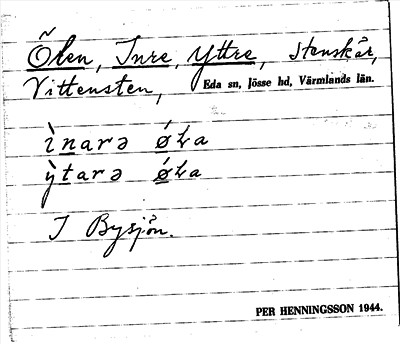 Öken, Inre, Yttre, Stenskär,
Vittensten, Eda sn, Jösse hd, Värmlands län.
ìnarə ǿka
ỳtarə ǿka
I Bysjön.
PER HENNINGSSON 1944.